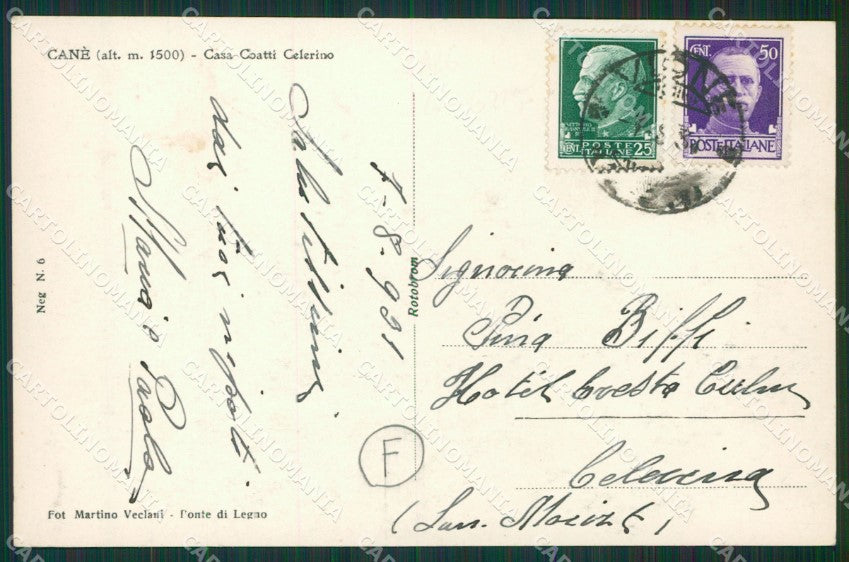 CANÈ (alt. m. 1500) - Casa Coatti Celerino
CENT. 50
POSTE ITALIANE
POSTE
ITALIANE
CENT. 25
7-8-931
Saluti
dai tuoi nipoti
Maria Paola
Neg N. 6
Rotobrom
Signorina
Pina Biffi
Hotel Cresta Culm
Celerina
(San. Moritz)
F
Fot Martino Veclani - Ponte di Legno
CARTOLINOMANIA